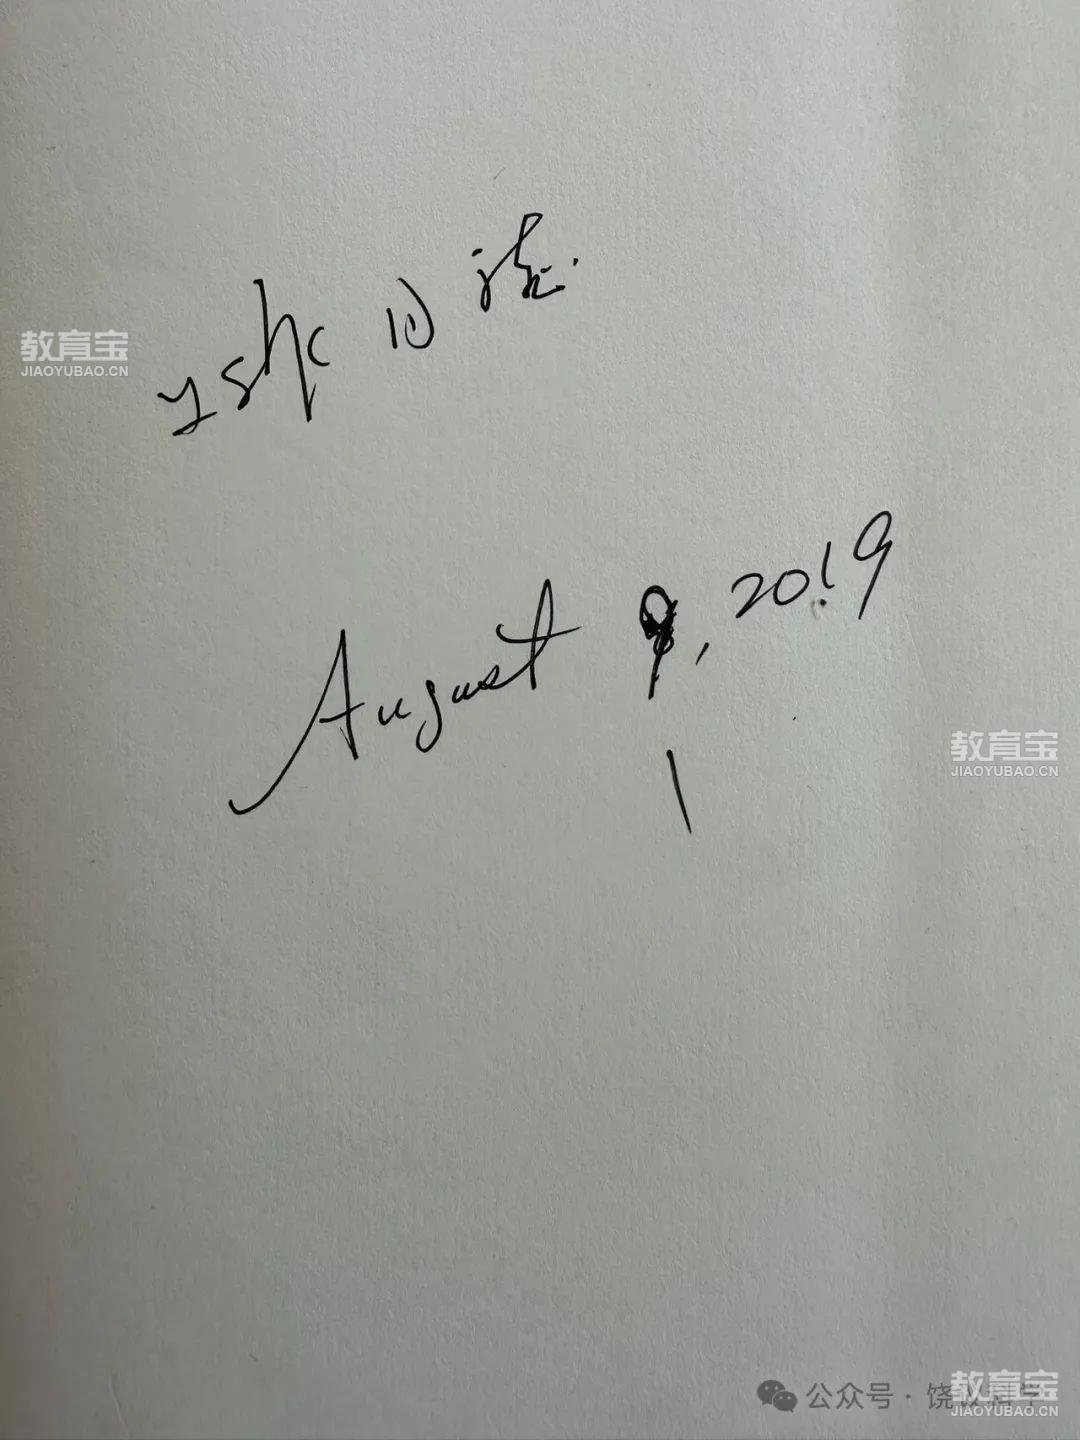 August 9, 2019
1
教育宝
JIAOYUBAO.CN
教育宝
JIAOYUBAO.CN
公众号·饶议科学
教育宝
JIAOYUBAO.CN